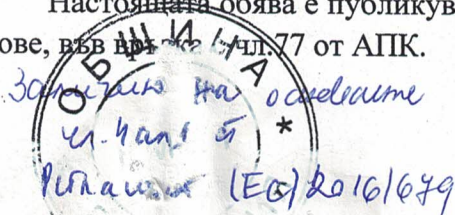 Настоящата обява е публикув
ове, във връзка с чл.77 от АПК.
ОБЩИНА *
Заличено на основание
чл.4 ал.1 т
Регламент (ЕС) 2016/679